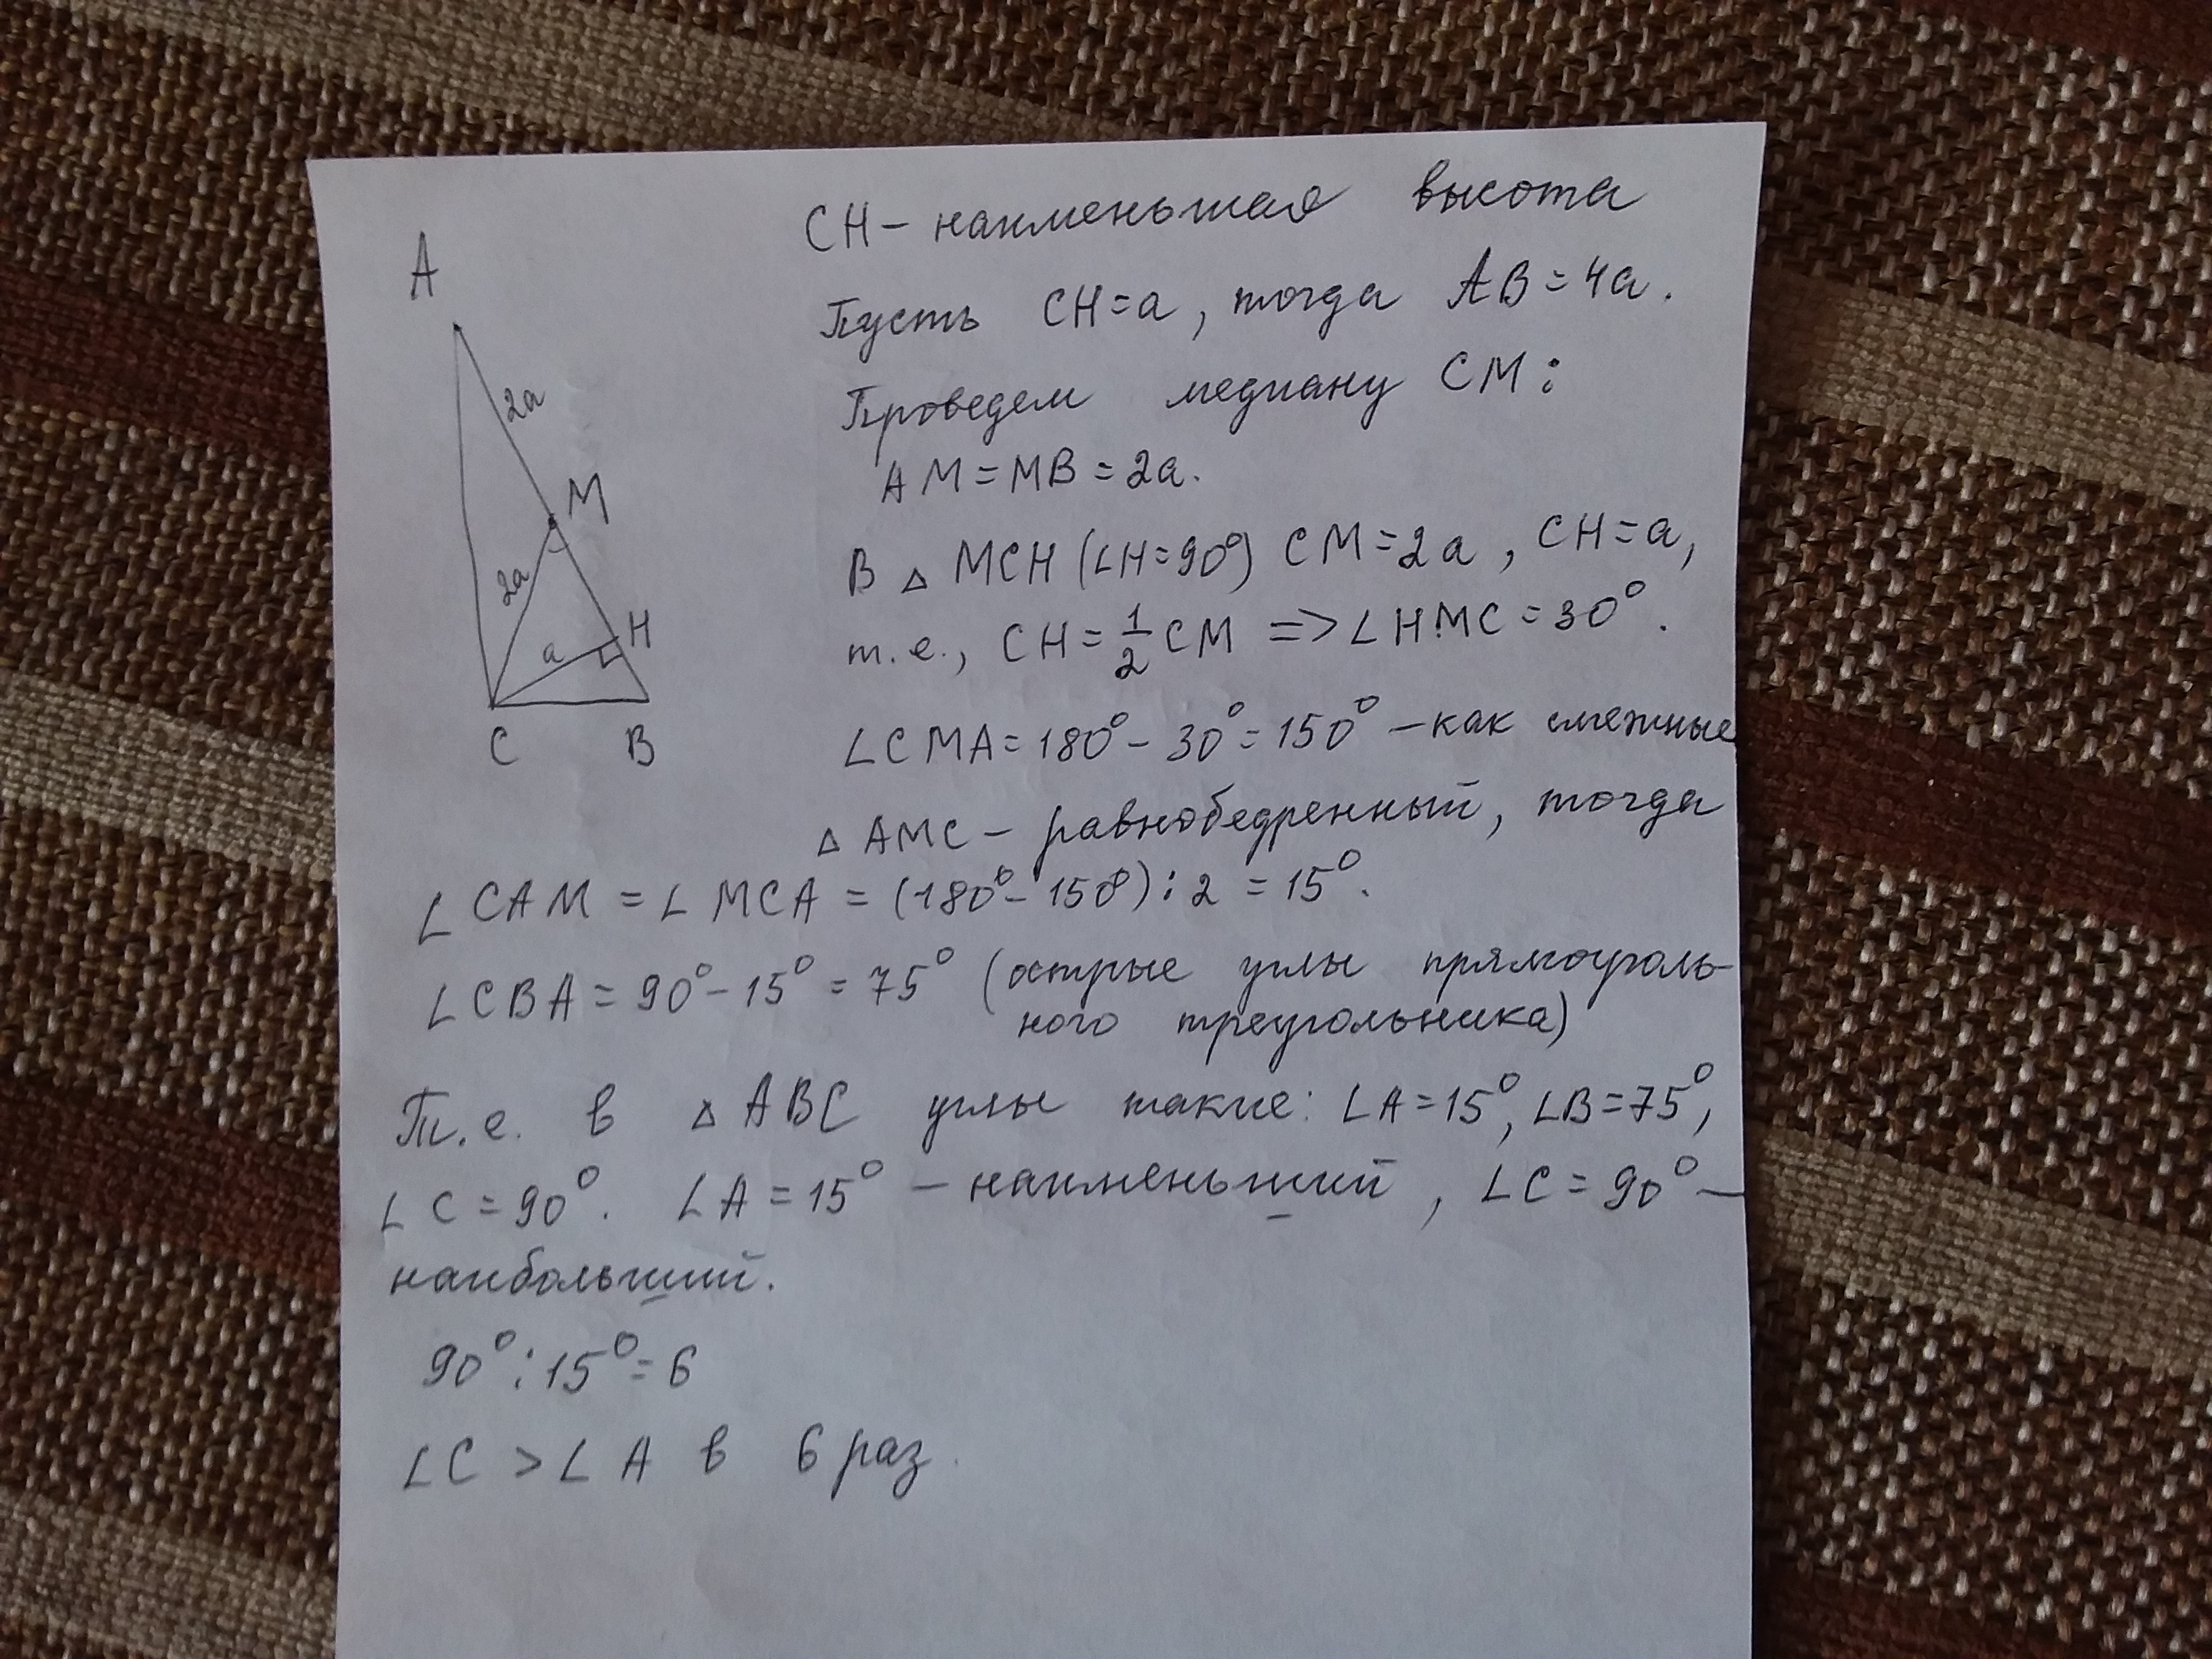 CH - наименьшая высота
Пусть CH=a, тогда AB=4a.
Проведем медиану CM:
AM=MB=2a.
В △ MCH (∠H=90°) CM=2a, CH=a,
т.е., CH=1/2 CM => ∠HMC=30°.
∠CMA=180°-30°=150° - как смежные
△ AMC - равнобедренный, тогда
∠CAM=∠MCA=(180°-150°):2=15°.
∠CBA=90°-15°=75° (острые углы прямоуголь-
ного треугольника)
Т.е. в △ABC углы такие: ∠A=15°, ∠B=75°,
∠C=90°. ∠A=15° - наименьший, ∠C=90° -
наибольший.
90°:15°=6
∠C > ∠A в 6 раз.
A
2a
M
2a
H
a
C B